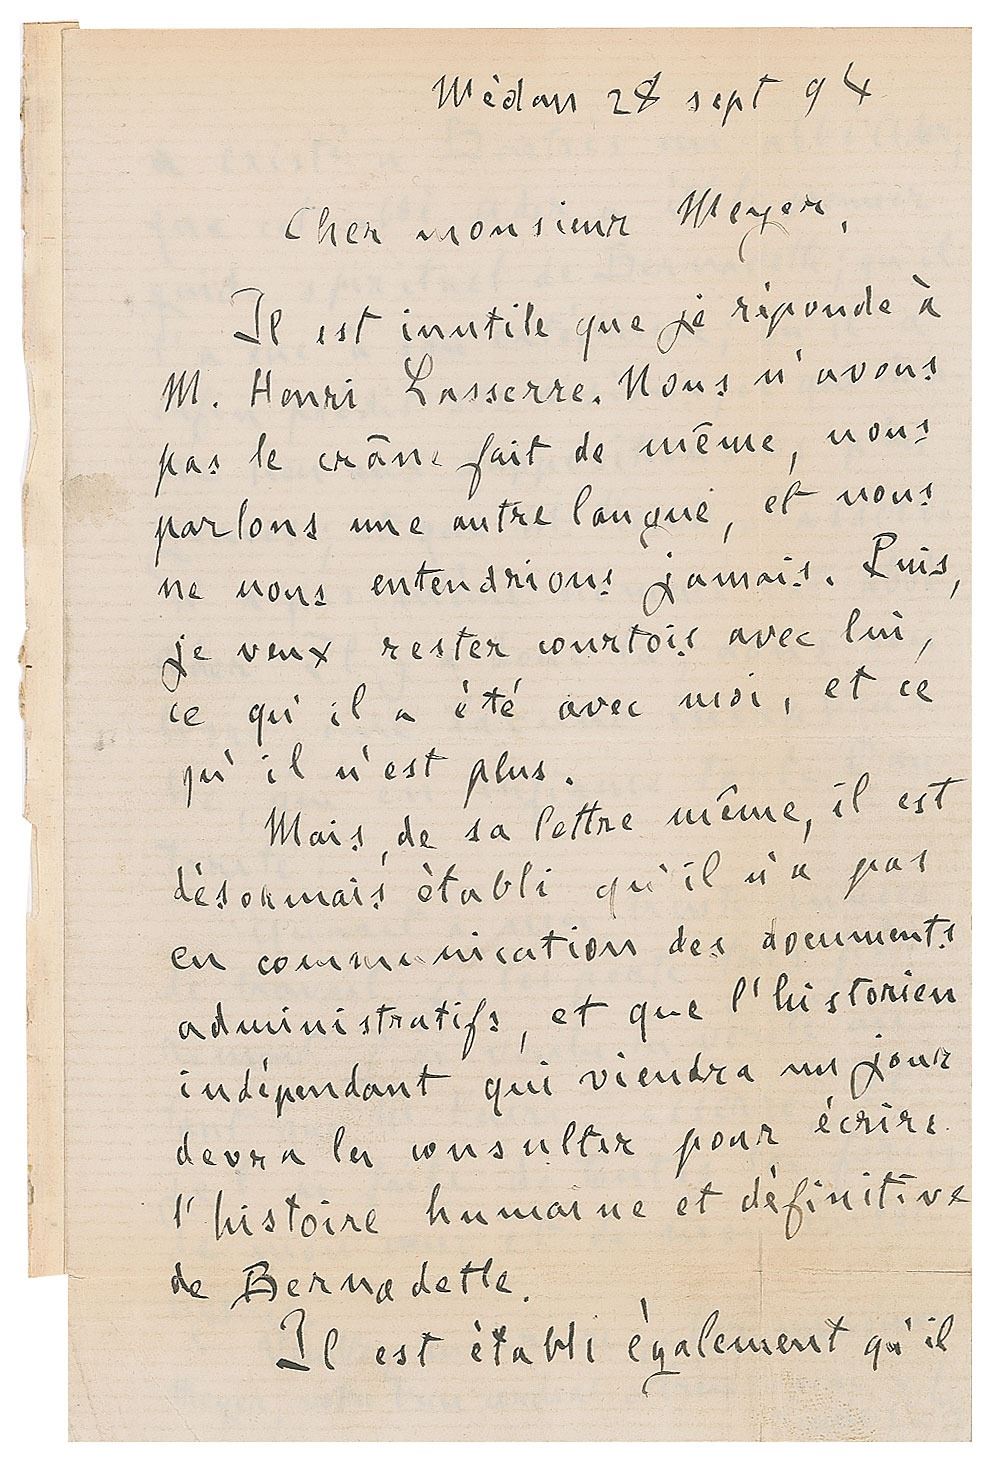 Médan 28 sept 94
Cher monsieur Meyer,
Il est inutile que je réponde à
M. Henri Lasserre. Nous n'avons
pas le crâne fait de même, nous
parlons une autre langue, et nous
ne nous entendrions jamais. Puis,
je veux rester courtois avec lui,
ce qu'il a été avec moi, et ce
qu'il n'est plus.
Mais, de sa lettre même, il est
désormais établi qu'il n'a pas
eu communication des documents
administratifs, et que l'historien
indépendant qui viendra un jour
devra les consulter pour écrire
l'histoire humaine et définitive
de Bernadette.
Il est établi également qu'il